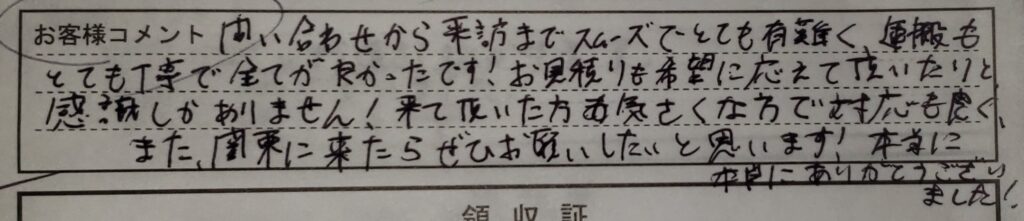 お客様コメント 問い合わせから来訪までスムーズでとても有難く、運搬も
とても丁寧で全てが良かったです！お見積りも希望に応えて頂いたりと
感謝しかありません！来て頂いた方も気さくな方で対応も良く、
また、関東に来たらぜひお願いしたいと思います！本当に
本当にありがとうござい
ました！
領収証